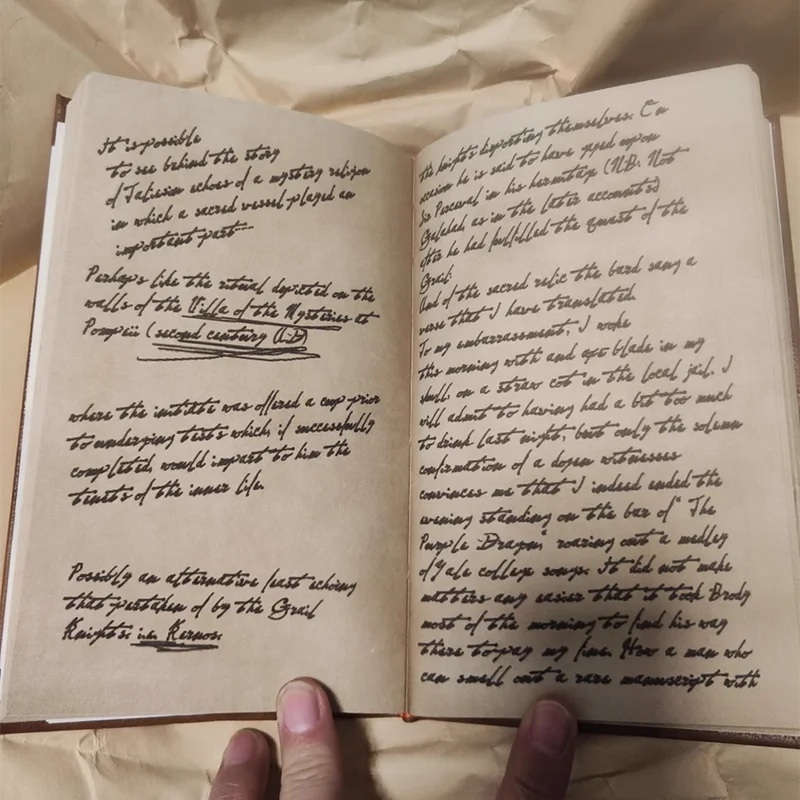 It is possible
to see behind the story
of Taliesin echoes of a mystery religion
in which a sacred vessel played an
important part--
Perhaps like the ritual depicted on the
walls of the Villa of the Mysteries at
Pompeii (second century A.D)
where the initiate was offered a cup prior
to undergoing tests which, if successfully
completed, would impart to him the
tenets of the inner life.
Possibly an alternative feast echoing
that partaken of by the Grail
Knights: i.e. Kernos:
the knights disporting themselves. On
occasion he is said to have gped upon
Sir Perceval in his hermitage (N.B. Not
Galahad as in the later accounts)
after he had fulfilled the quest of the
Grail:
And of the sacred relic the bard sang a
verse that I have translated.
To my embarrassment, I woke
this morning with and axe blade in my
skull on a straw cot in the local jail. I
will admit to having had a bit too much
to drink last night, but only the solemn
confirmation of a dozen witnesses
convinces me that I indeed ended the
evening standing on the bar of "The
Purple Dragon" roaring out a medley
of Yale college songs. It did not make
matters any easier that it took Brody
most of the morning to find his way
there to pay my fine. How a man who
can smell out a rare manuscript with